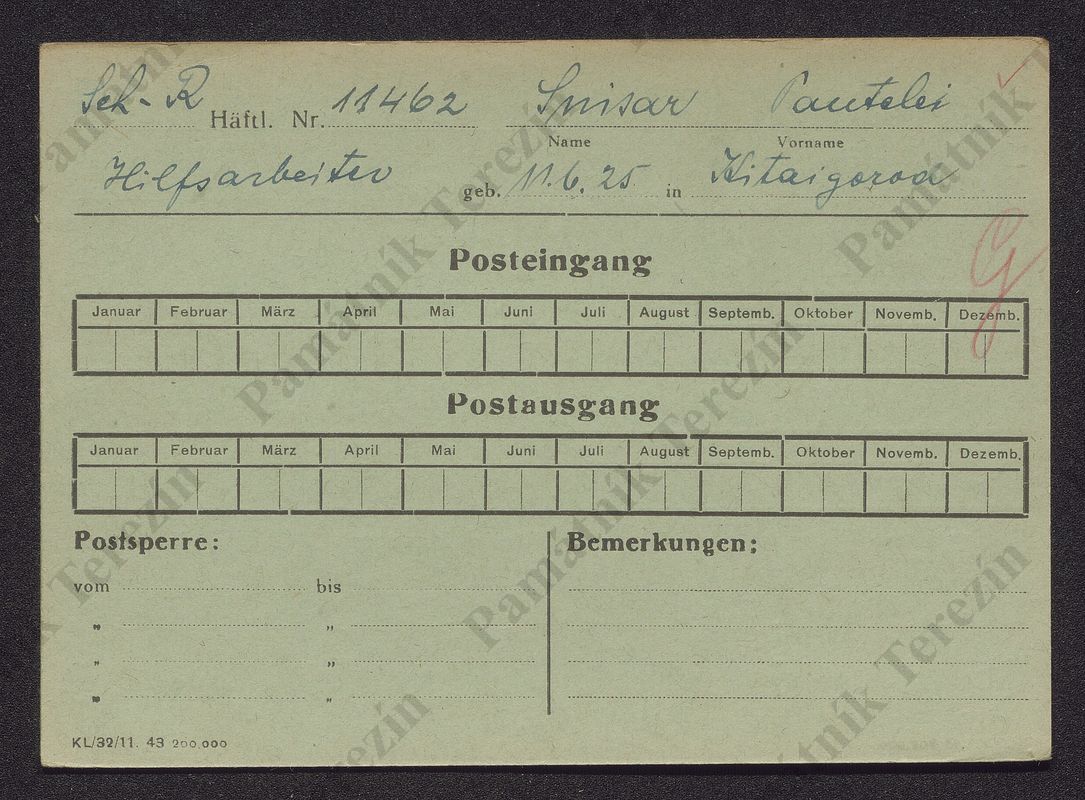 Sch-R Häftl. Nr. 11462 Snisar Pantelei
Name Vorname
Hilfsarbeiter geb. 11.6.25 in Kitaigorod
G
Posteingang
Januar Februar März April Mai Juni Juli August Septemb. Oktober Novemb. Dezemb.
Postausgang
Januar Februar März April Mai Juni Juli August Septemb. Oktober Novemb. Dezemb.
Postsperre: Bemerkungen:
vom bis
" "
" "
" "
KL/32/11. 43 200.000
Památník Terezín
Památník Terezín
Památník Terezín
Památník Terezín